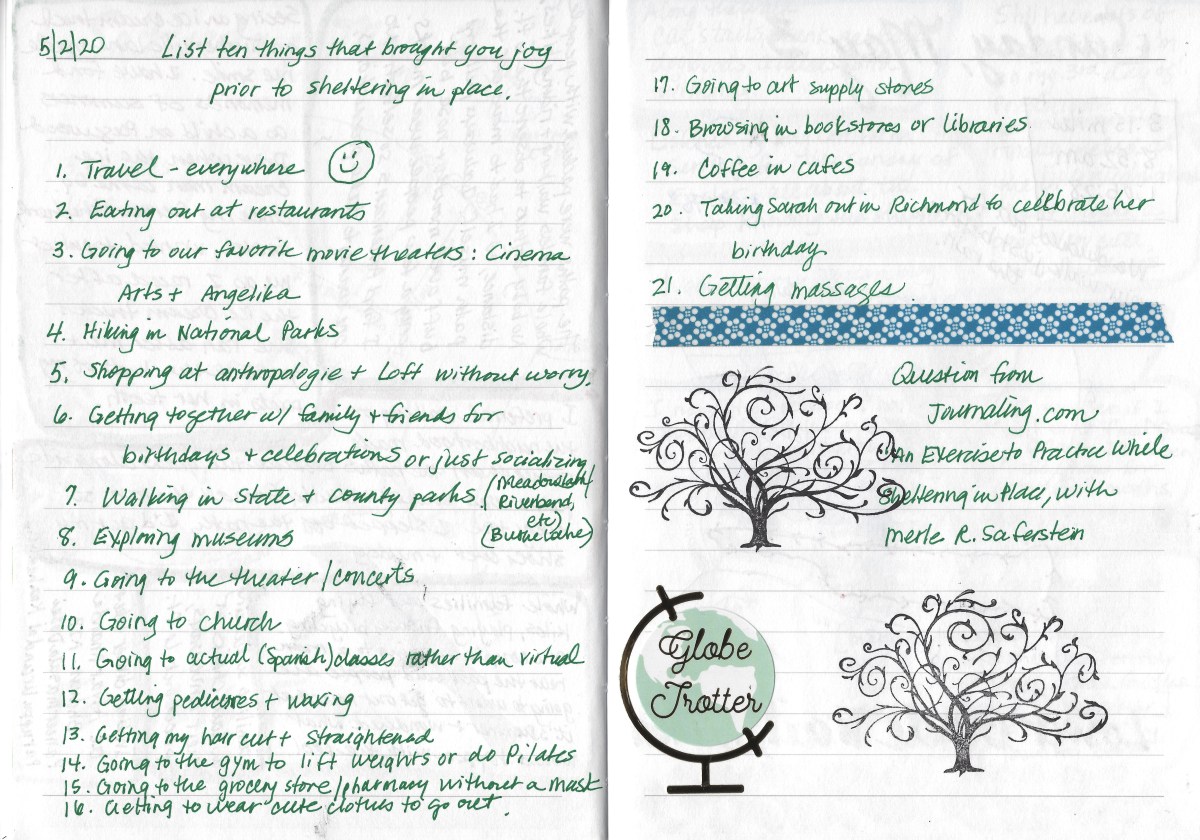 5/2/20 List ten things that brought you joy
prior to sheltering in place.
1. Travel - everywhere
2. Eating out at restaurants
3. Going to our favorite movie theaters: Cinema
Arts + Angelika
4. Hiking in National Parks
5. Shopping at anthropologie + Loft without worry.
6. Getting together w/ family + friends for
birthdays + celebrations or just socializing
7. Walking in state + county parks (Meadowlark/
Riverbend,
etc)
8. Exploring museums
(Burke Lake)
9. Going to the theater/concerts
10. Going to church
11. Going to actual (Spanish) classes rather than virtual
12. Getting pedicures + waxing
13. Getting my hair cut + straightened
14. Going to the gym to lift weights or do Pilates
15. Going to the grocery store/pharmacy without a mask
16. Getting to wear cute clothes to go out.
17. Going to art supply stores
18. Browsing in bookstores or libraries.
19. Coffee in cafes
20. Taking Sarah out in Richmond to celebrate her
birthday
21. Getting massages.
Question from
Journaling.com
An Exercise to Practice While
Sheltering in Place, with
Merle R. Saferstein
Globe
Trotter